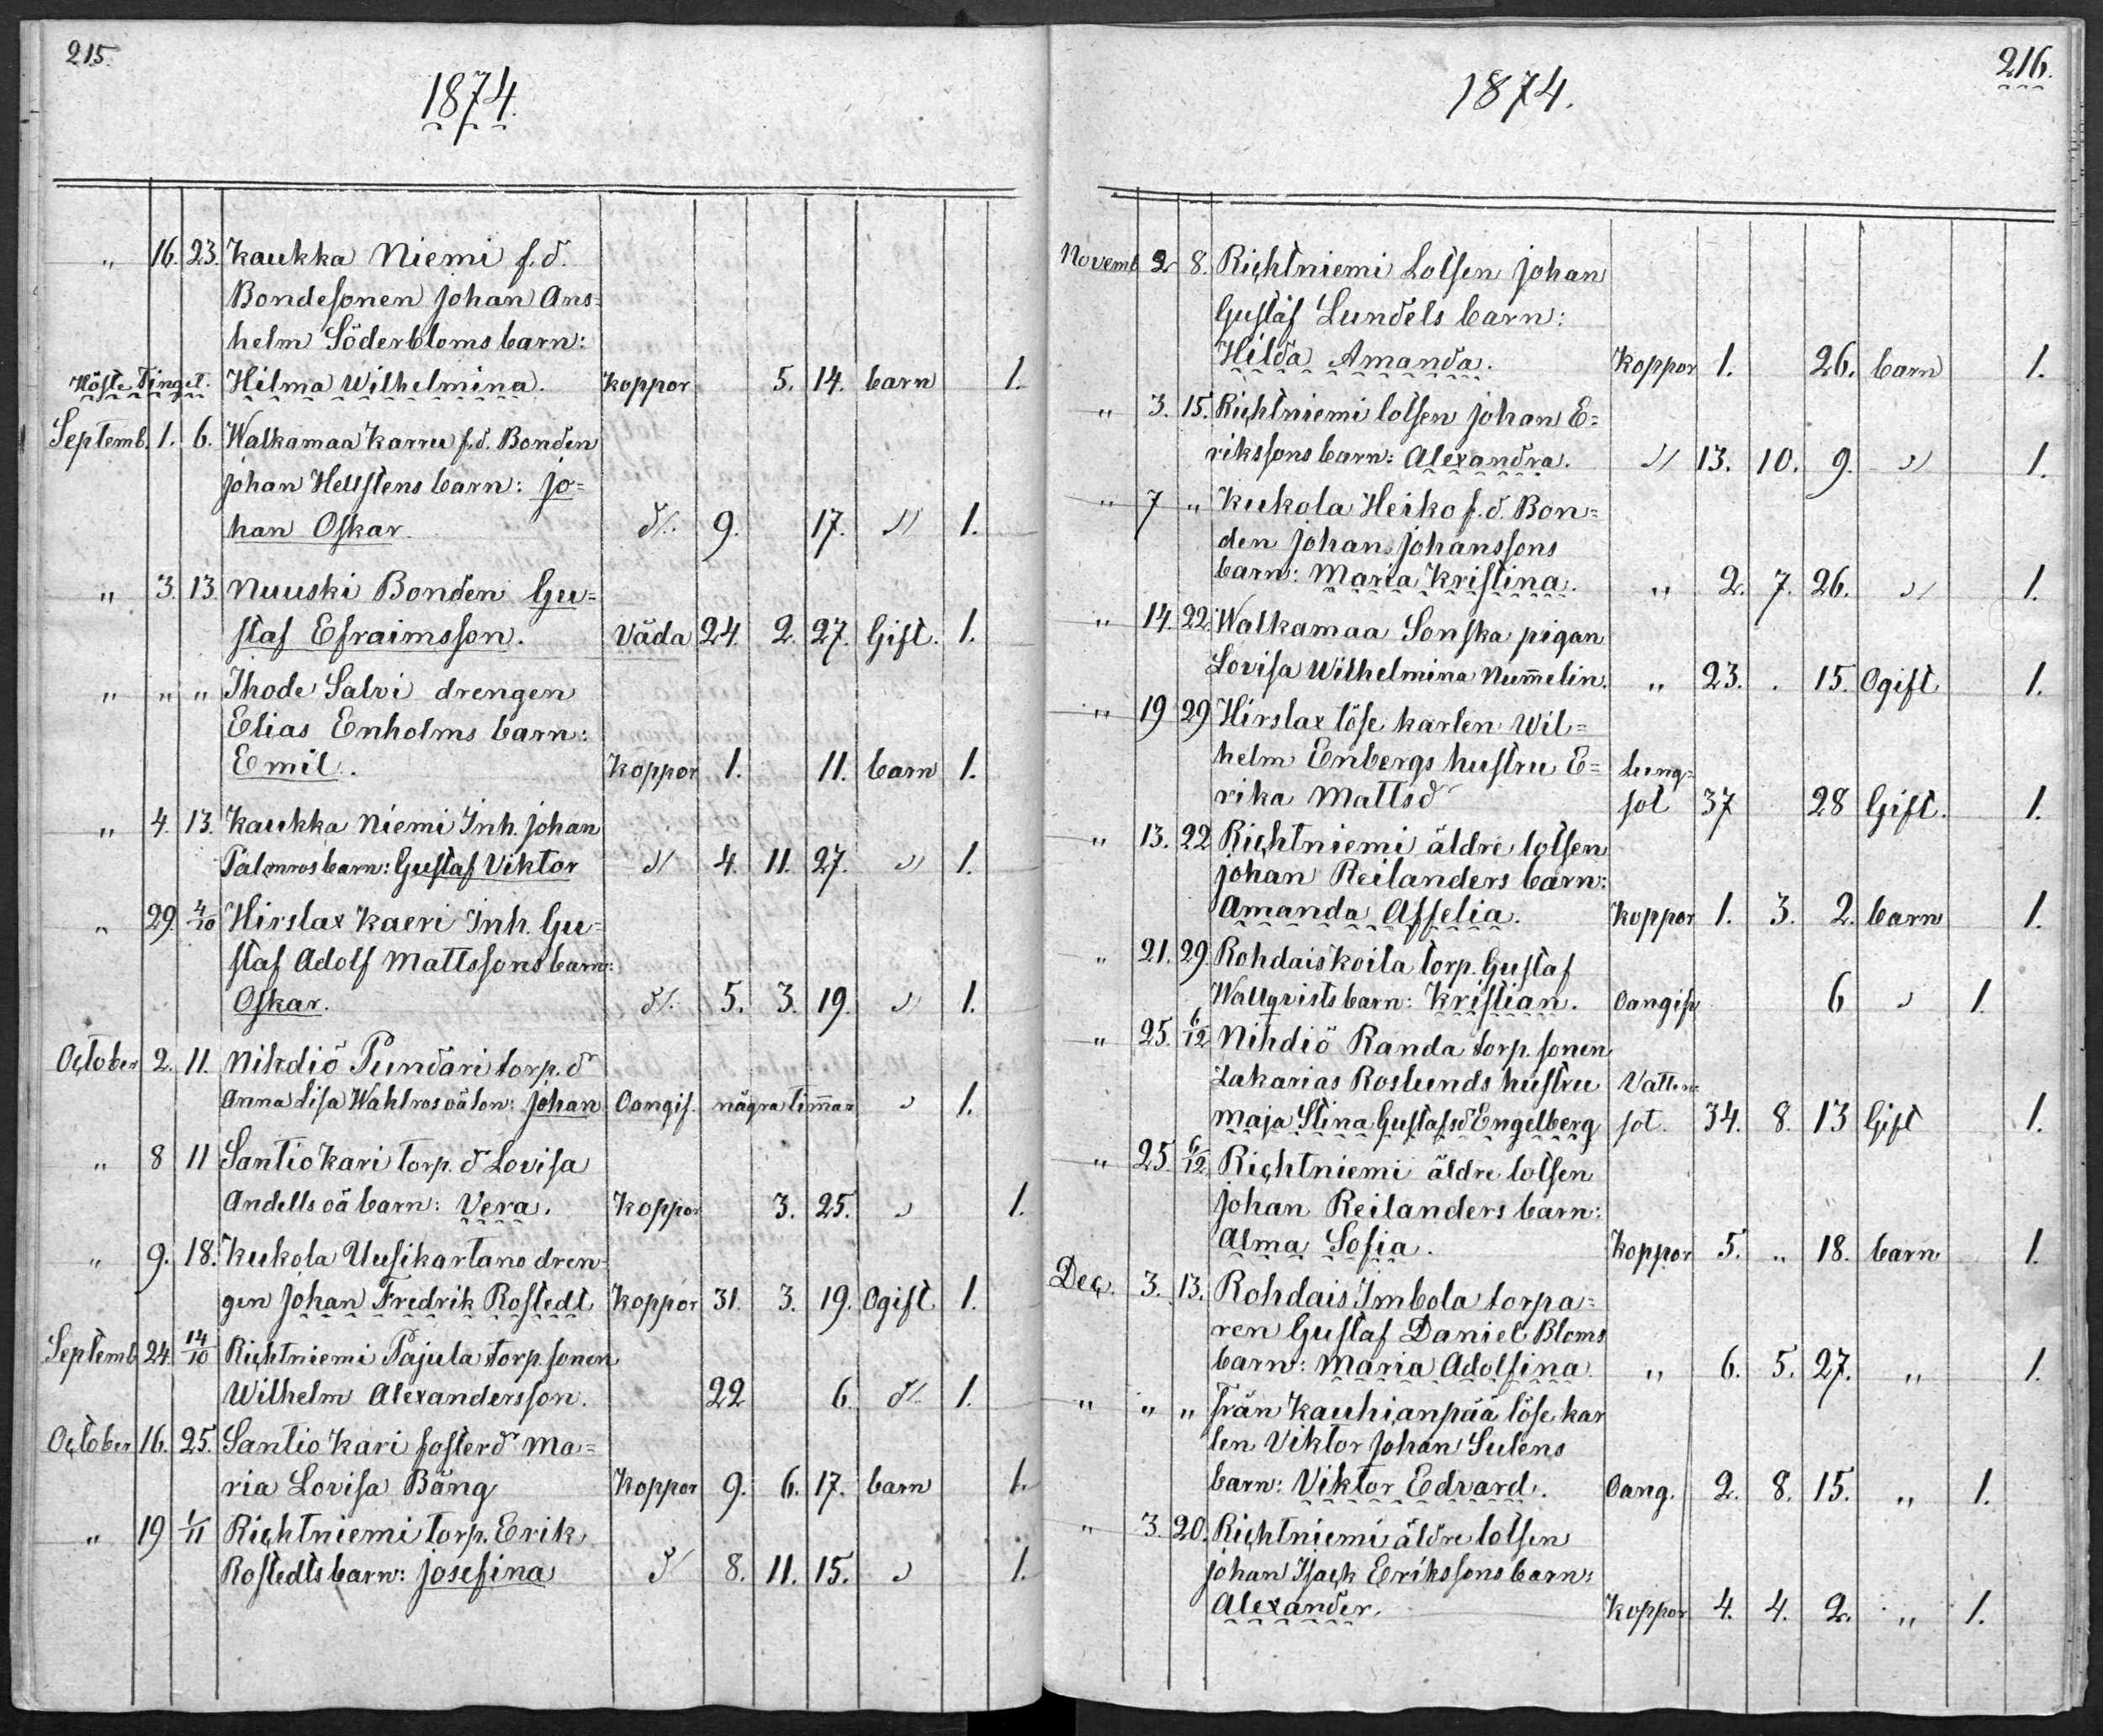 215.
1874.
" 16. 23. Kaukka Niemi f.d.
Bondesonen Johan Ans=
helm Söderbloms barn:
Höste Tinget. Hilma Wilhelmina. Koppor 5. 14. barn 1.
Septemb. 1. 6. Walkamaa Karru f.d. Bonden
Johan Hellstens barn: Jo=
han Oskar d/. 9. 17. " 1.
" 3. 13. Nuuski Bonden Gu=
staf Efraimsson. Våda 24. 2. 27. Gift. 1.
" " " Ihode Salvi drengen
Elias Enholms barn:
Emil. Koppor 1. 11. barn 1.
" 4. 13. Kaukka Niemi Inh. Johan
Palmros barn: Gustaf Viktor " 4. 11. 27. " 1.
" 29. 4/10 Hirslax Kaeri Inh. Gu=
staf Adolf Mattssons barn:
Oskar. d/. 5. 3. 19. " 1.
October 2. 11. Nihdiö Pundari torp. d
Anna Lisa Wahlros oä son: Johan Oangif. några timar " 1.
" 8 11 Santio Kari torp. d Lovisa
Andells oä barn: Vera. Koppor 3. 25. " 1.
" 9. 18. Kukola Uusikartano dren=
gen Johan Fredrik Rostedt Koppor 31. 3. 19. Ogift 1.
Septemb 24. 14/10 Richtniemi Pajula torp. sonen
Wilhelm Alexandersson. 22 6. d/. 1.
October 16. 25. Santio Kari fosterd Ma=
ria Lovisa Bäng Koppor 9. 6. 17. barn 1.
" 19 1/11 Richtniemi torp. Erik
Rostedts barn: Josefina d/ 8. 11. 15. " 1.
216.
1874.
Novemb 2 8. Richtniemi Lotsen Johan
Gustaf Lundels barn:
Hilda Amanda. Koppor 1. 26. barn 1.
" 3. 15. Richtniemi lotsen Johan E=
rikssons barn: Alexandra. " 13. 10. 9. " 1.
" 7 " Kukola Heiko f.d. Bon=
den Johan Johanssons
barn: Maria Kristina. " 2. 7. 26. " 1.
" 14. 22. Walkamaa Sonska pigan
Lovisa Wilhelmina Numelin. " 23. . 15. Ogift 1.
" 19 29 Hirslax löse karlen Wil=
helm Enbergs hustru E= Lung=
rika Mattsd sot 37 28 Gift. 1.
" 13. 22 Richtniemi äldre lotsen
Johan Reilanders barn:
Amanda Asselia. Koppor 1. 3. 2. barn 1.
" 21. 29. Rohdais Koila torp. Gustaf
Wallqvists barn: Kristian. Oangif 6 " 1.
" 25. 6/12 Nihdiö Randa torp. sonen
Zakarias Roslunds hustru Vatten=
Maja Stina Gustafsd Engelberg sot. 34. 8. 13 Gift 1.
" 25. 6/12 Richtniemi äldre lotsen
Johan Reilanders barn:
Alma Sofia. Koppor 5. " 18. barn 1.
Dec. 3. 13. Rohdais Imbola torpa=
ren Gustaf Daniel Bloms
barn: Maria Adolfina. " 6. 5. 27. " 1.
" " " Från Kauhianpää löse kar
len Viktor Johan Sulens
barn: Viktor Edvard. Oang. 2. 8. 15. " 1.
" 3. 20. Richtniemi äldre lotsen
Johan Isack Erikssons barn:
Alexander. Koppor 4. 4. 2. " 1.